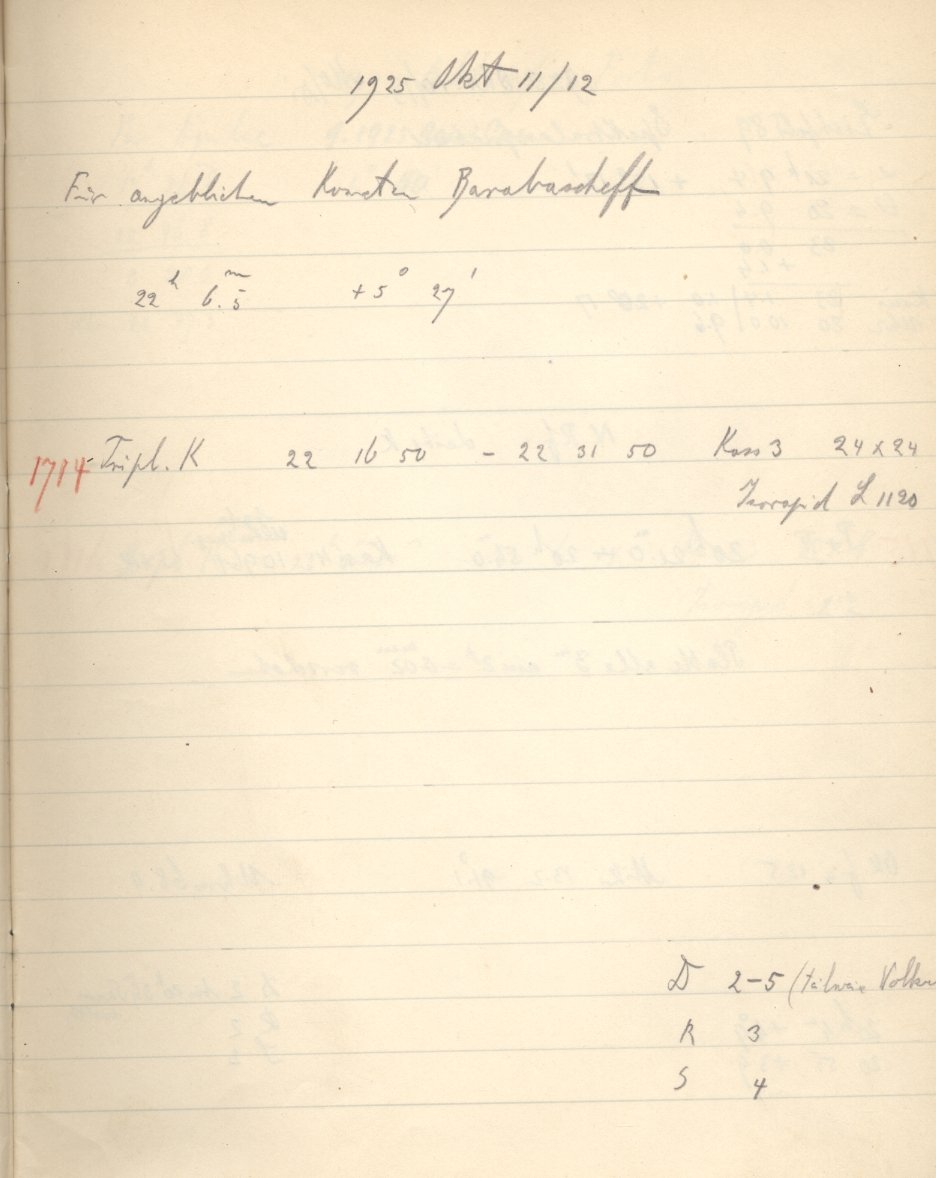 1925 Okt 11/12
Für angeblichen Kometen Barabascheff
22ʰ 6.ᵐ5 +5° 27'
1714 Tripl. K 22 16 50 - 22 31 50 Kass 3 24 x 24
Isorapid L 1120
D 2-5 (teilweise
R 3
S 4